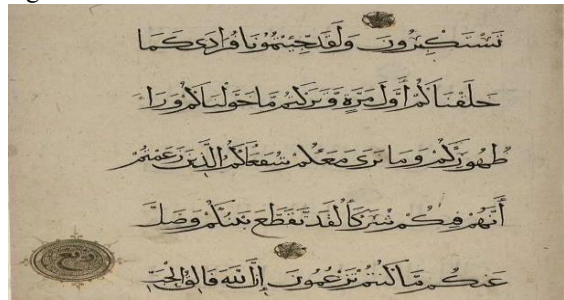 تَسْتَكْبِرُونَ وَلَقَدْ جِئْتُمُونَا فُرَادَى كَمَا
خَلَقْنَاكُمْ أَوَّلَ مَرَّةٍ وَتَرَكْتُمْ مَا خَوَّلْنَاكُمْ وَرَا
ظُهُورِكُمْ وَمَا نَرَى مَعَكُمْ شُفَعَاكُمُ الَّذِينَ زَعَمْتُمْ
أَنَّهُمْ فِيكُمْ شُرَكَأُ لَقَدْ تَقَطَّعَ بَيْنَكُمْ وَضَلَّ
عَنكُمْ مَا كُنْتُمْ تَزْعُمُونَ إِنَّ اللَّهَ فَالِقُ الْحَبِّ